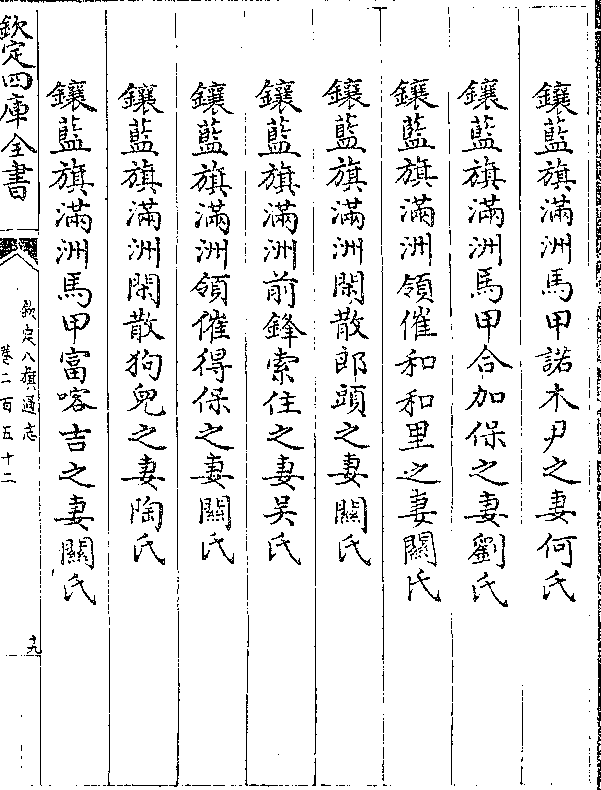 鑲藍旗滿洲馬甲諾木尹之妻何氏
鑲藍旗滿洲馬甲合加保之妻劉氏
鑲藍旗滿洲領催和和里之妻關氏
鑲藍旗滿洲閑散郎頭之妻關氏
鑲藍旗滿洲前鋒索住之妻吴氏
鑲藍旗滿洲領催得保之妻關氏
鑲藍旗滿洲閑散狗兒之妻陶氏
鑲藍旗滿洲馬甲富喀吉之妻關氏
欽定四庫全書
欽定八旗通志
卷二百五十二
十九